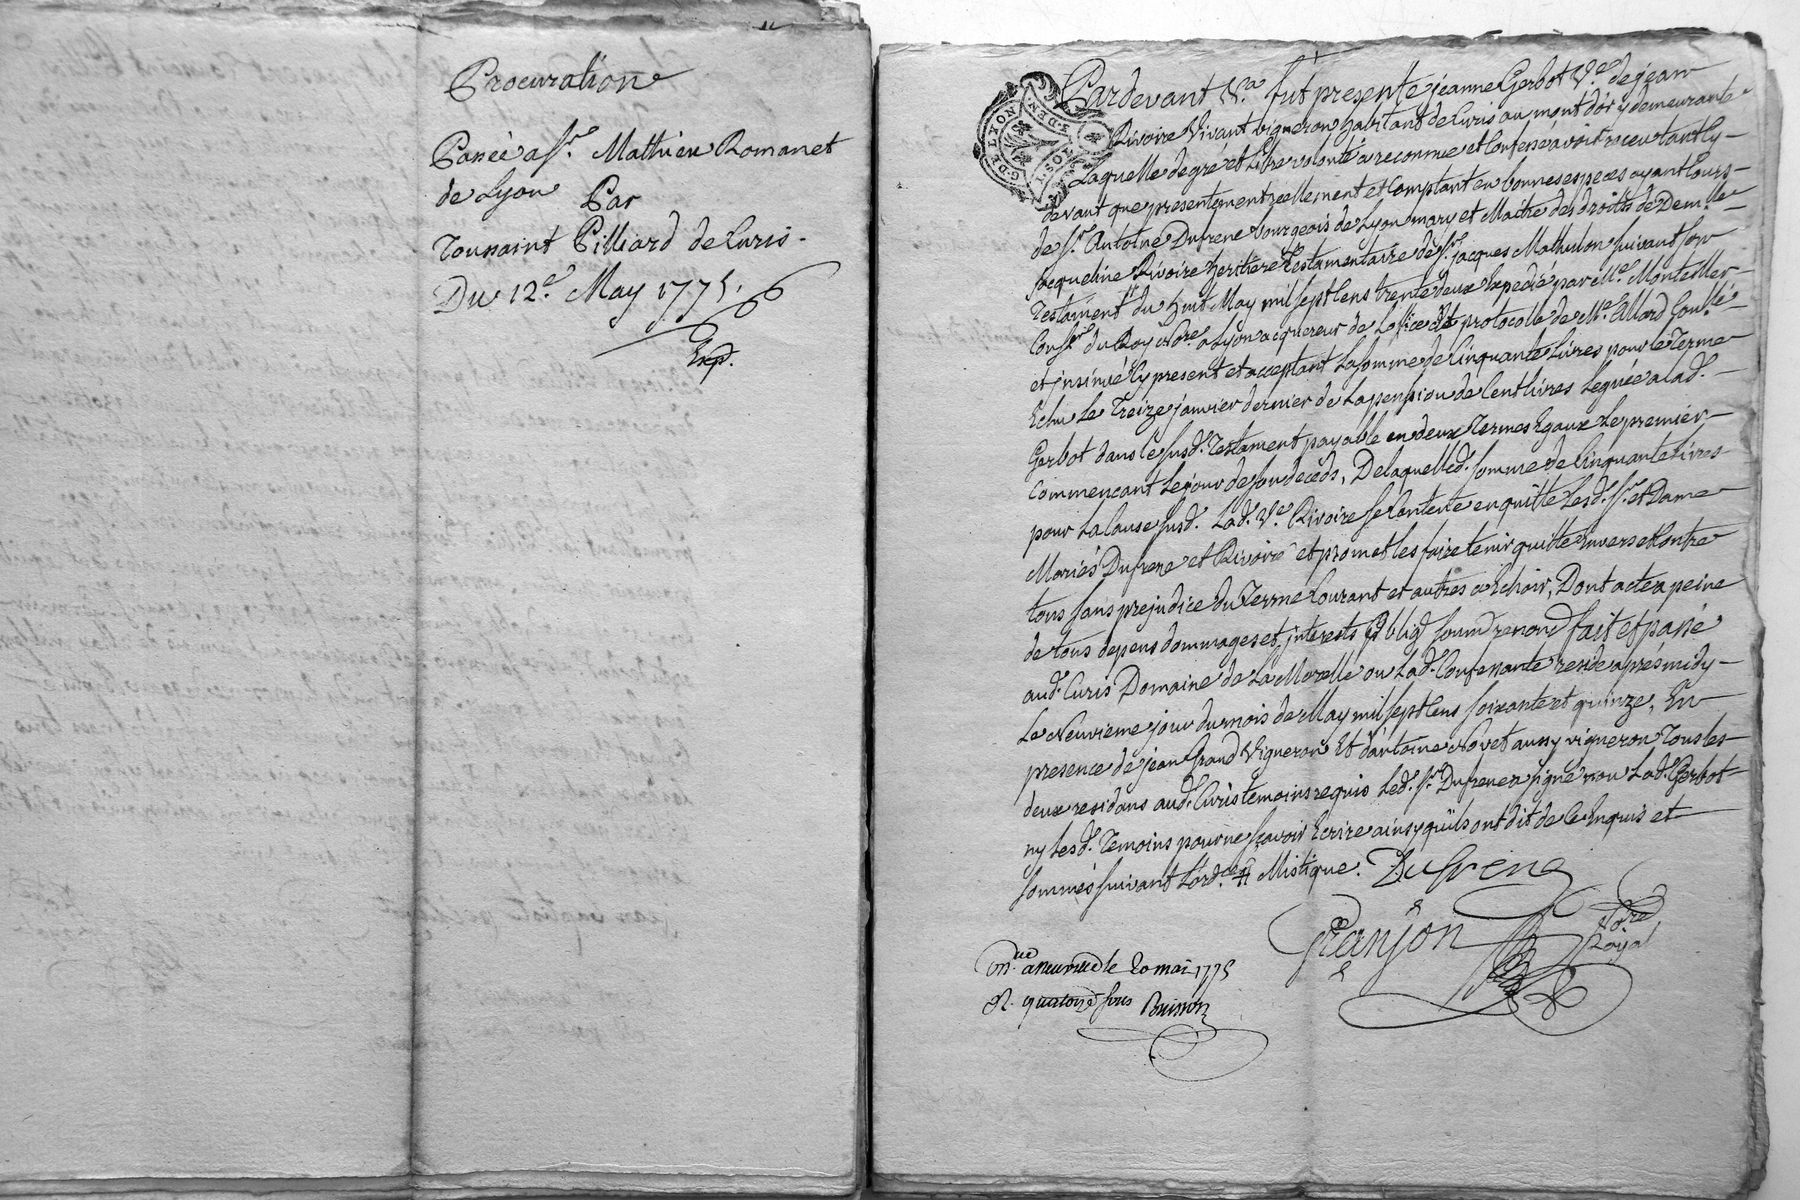 Procuration
Passée a Sr. Mathieu Romanet
de Lyon Par
Toussaint Pilliard de Curis.
Du 12e. May 1775.
Exp.
G. DE LYON
Pardevant Nre fut presente jeanne Gerbot Ve. de jean
Rivoire Vivant vigneron habitant de Curis au mont d'or y demeurante
Laquelle de gré et Libre volonté a reconnue et Confessé avoir receu tant cy
devant que presentement reellement et Comptant en bonnes especes ayant Cours
de Sr. Antoine Dufrene bourgeois de Lyon mary et Maitre des droits de Demlle
jacqueline Rivoire heritiere Testamentaire de Sr. jacques Mathulon suivant son
Testament du huit May mil sept Cens trente deux Expedié par Me. Monteiller
Conser. du Roy Nore. a Lyon acquereur de Lofice et protocolle de Me. Allard Conllé
et insinué Cy present et acceptant La somme de Cinquante Livres pour le Terme
Echu le Treize janvier dernier de La pension de Cent livres Leguée a lad.
Gerbot dans le susd. Testament payable en deux Termes Egaux Le premier
Commencant Le jour de son deceds, De laquelle d. somme de Cinquante Livres
pour La Cause susd. Lad. Ve. Rivoire se Contente en quitte Lesd. Sr. et Dame
Mariés Dufrene et Rivoire et promet les faire tenir quitte envers et Contre
tous sans prejudice du Terme Courant et autres a Echoir, Dont acte a peine
de tous depens dommages et interests oblig soum renond fait et passé
aud. Curis Domaine de La Morelle ou Lad. Confessante reside aprés midy
Le Neuvieme jour du mois de May mil sept Cens soixante et quinze, En
presence de jean Grand Vigneron Et d'antoine Novet aussy vigneron Tous les
deux residans aud. Curis temoins requis Led. Sr. Dufrene a signé non Lad. Gerbot
ny Lesd. Temoins pour ne sçavoir Ecrire ainsy qu'ils ont dit de Ce Enquis et
sommés suivant L'ordce. # Mistique. Dufrene
Granjon Nore Royal
a neuville le 20 mai 1775
R. quatorze sous Buisson